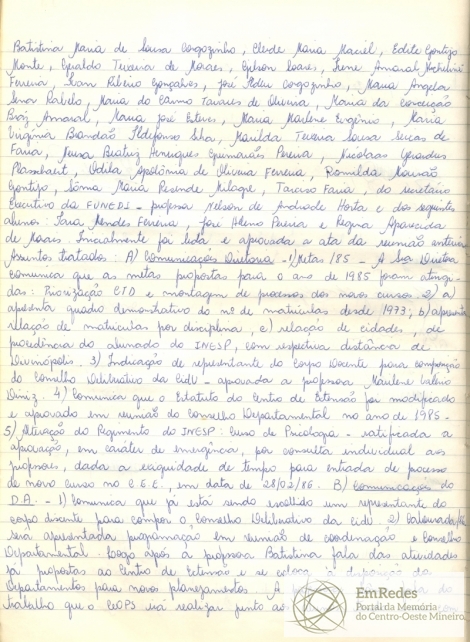 Batistina Maria de Sousa Corgozinho, Cleide Maria Maciel, Edite Gontijo
Monte, Geraldo Teixeira de Moraes, Gelson Soares, Irene Amaral
Ferreira, Ivan Ribeiro Gonçalves, José Corgozinho, Maria Angela
Sena Rabelo, Maria do Carmo Tavares de Oliveira, Maria da Conceição
Braz Amaral, Maria José Esteves, Maria Marlene Eugênio, Maria
Virgínia Brandão Ildefonso Silva, Marilda Teixeira Sousa Seccas de
Faria, Neusa Beatriz Henriques Guimarães Pereira, Nicolaas Gerardus
Plasschaert, Odila Apolônia de Oliveira Ferreira, Romilda Mourão
Gontijo, Sônia Maria Resende Milagre, Tarciso Faria do secretário
Executivo da FUNEDI - professor Nelson de Andrade Horta e dos seguintes
alunos: Sara Mendes Ferreira, José Pereira e Regina Aparecida
de Morais. Inicialmente foi lida e aprovada a ata da reunião anterior.
Assuntos tratados: A) Comunicações Diretoria - 1) Metas /85 - A Sra Diretora
comunica que as metas propostas para o ano de 1985 foram atingi-
das: Priorização CTD e montagem de processos dos novos cursos - 2) a)
apresenta quadro demonstrativo do nº de matrículas desde 1973; b) apresenta
relação de matrículas por disciplina, c) relação de cidades, de
procedência do alunado do INESP, com respectiva distância de
Divinópolis. 3) Indicação de representante do Corpo Docente para composição
do Conselho Deliberativo da - aprovada a professora Marlene Valério
Diniz. 4) Comunica que o Estatuto do Centro de Extensão foi modificado
e aprovado em reunião do Conselho Departamental no ano de 1985 -
5) Alteração do Regimento do INESP: Curso de Psicologia - ratificada a
aprovação, em caráter de emergência, por consulta individual aos
professores, dada a exiguidade de tempo para entrada de processo
de novo curso no C.E.E., em data de 28/02/86. B) Comunicações do
D.A. - 1) Comunica que já está sendo escolhido um representante do
corpo discente para compor o Conselho Deliberativo da 2) Calourada/86
será apresentada programação em reunião de coordenação e Conselho
Departamental - Logo após a professora Batistina fala das atividades
já propostas ao Centro de Extensão e se coloca à disposição dos
Departamentos para novos planejamentos. A
trabalho que o CEOPS irá realizar junto aos
EmRedes
Portal da Memória
do Centro-Oeste Mineiro